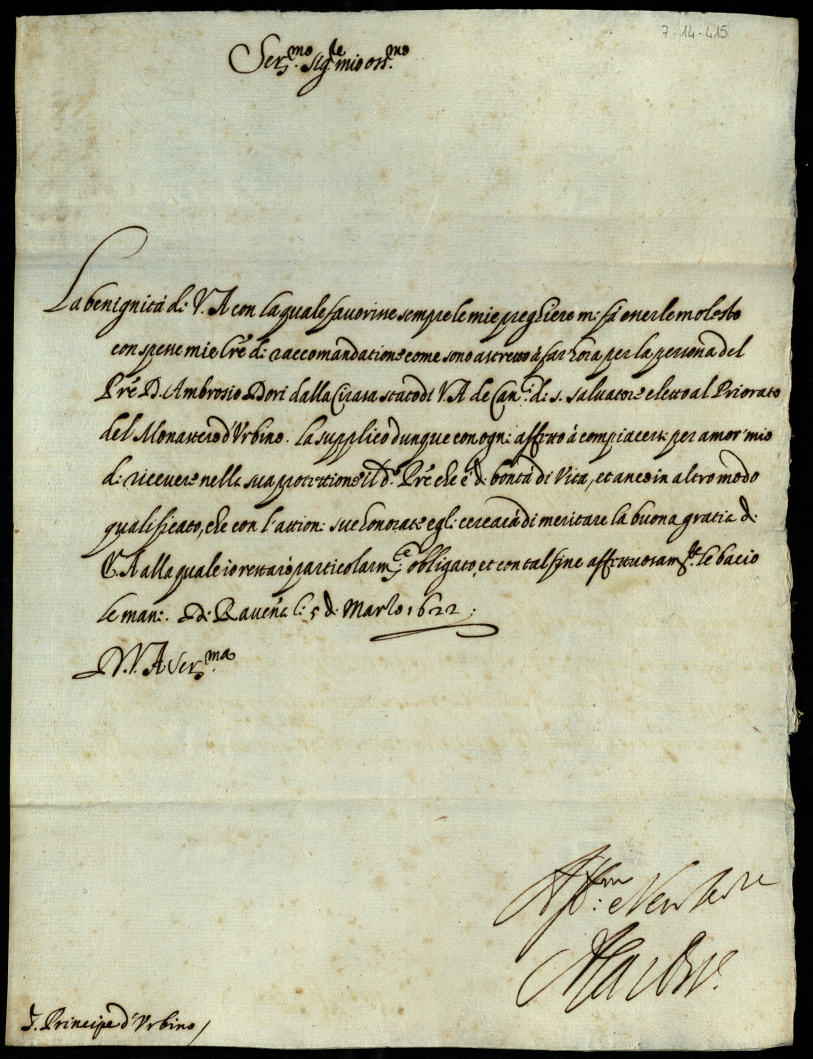 7-14-415
Ser.mo Sig.re mio oss.mo
La benignità di V. A con la quale favorisse sempre le mie preghiere mi fà esserle molesto
con spesse mie l're di raccomandatione come sono astretto à far hora per la persona del
Pr'e D. Ambrosio Dori dalla stato di V A de Can.ci di s. salvatore eletto al Priorato
del Monastero d'Urbino. la supplico dunque con ogni affetto à compiacersi per amor mio
di ricevere nella sua protettione il d.o Pr'e che è di bontà di Vita, et anco in altro modo
qualificato, che con l'attioni sue honorate egli cercarà di meritare la buona gratia di
V. A alla quale io restarò particolarm.te obligato, et con tal fine affettuosam.te le bacio
le mani. Di Raven'a li 5 di Marzo 1622.
D. V. A Ser.ma
Aff.mo
S. Principe d'Urbino